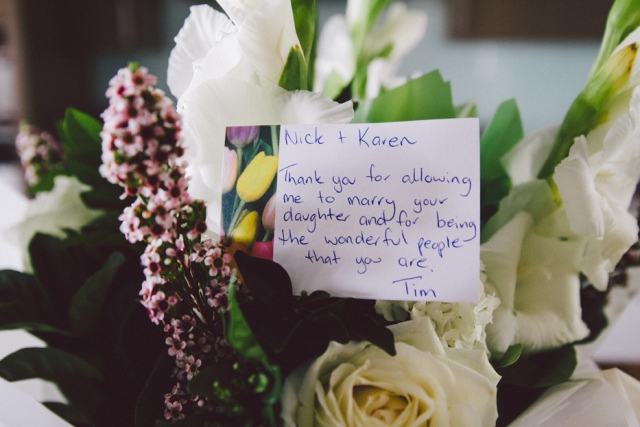 Nick + Karen
Thank you for allowing
me to marry your
daughter and for being
the wonderful people
that you are.
Tim